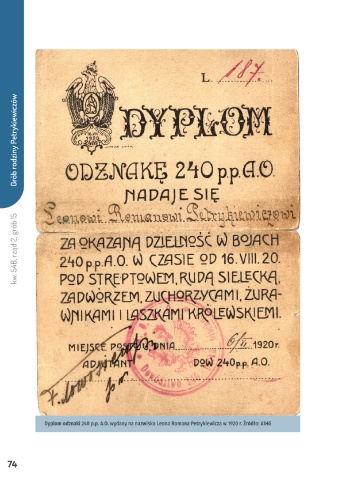 Grób rodziny Petrykiewiczów
kw. 54B, rząd 2, grób 15
L. 187.
DYPLOM
ODZNAKĘ 240 p.p. A.O.
NADAJE SIĘ
Leonowi Romanowi Petrykiewiczowi
ZA OKAZANĄ DZIELNOŚĆ W BOJACH
240 p.p. A.O. W CZASIE OD 16. VIII. 20.
POD STREPTOWEM, RUDĄ SIELECKĄ,
ZADWÓRZEM, ZUCHORZYCAMI, ŻURA-
WNIKAMI I LASZKAMI KRÓLEWSKIEMI.
MIEJSCE POSTOJU, DNIA 6/II 1920r.
ADJUTANT DOW 240 p.p. A.O.
Dyplom odznaki 240 p.p. A.O. wydany na nazwisko Leona Romana Petrykiewicza w 1920 r. Źródło: AIMG
74